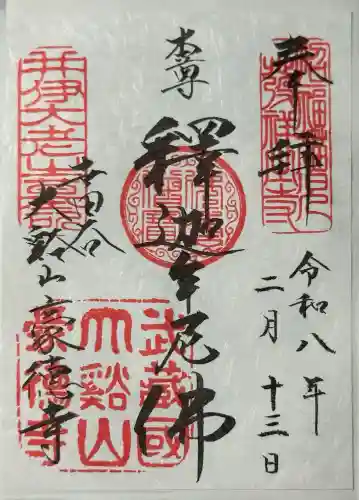 奉拝
令和八年
二月十三日
本尊
釋迦牟尼佛
世田谷
大谿山豪德寺
井伊大老
武蔵國
大谿山